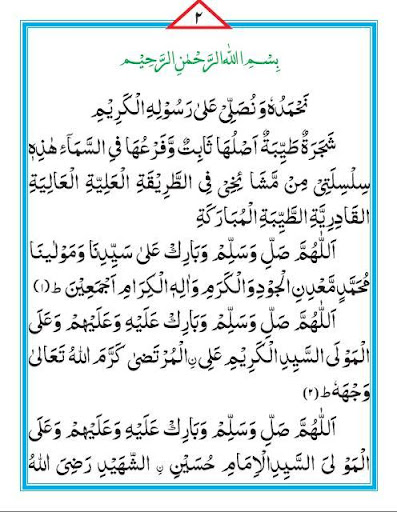 ۲
بِسْمِ اللهِ الرَّحْمٰنِ الرَّحِيْمِ
نَحْمَدُهٗ وَ نُصَلِّيْ عَلٰى رَسُوْلِهِ الْكَرِيْمِ
شَجَرَةٌ طَيِّبَةٌ اَصْلُهَا ثَابِتٌ وَّفَرْعُهَا فِي السَّمَآءِ هٰذِهٖ
سِلْسِلَتِيْ مِنْ مَّشَائِخِيْ فِي الطَّرِيْقَةِ الْعَلِيَّةِ الْعَالِيَةِ
الْقَادِرِيَّةِ الطَّيِّبَةِ الْمُبَارَكَةِ
اَللّٰهُمَّ صَلِّ وَسَلِّمْ وَبَارِكْ عَلٰى سَيِّدِنَا وَمَوْلٰينَا
مُحَمَّدٍ مَّعْدِنِ الْجُوْدِ وَالْكَرَمِ وَاٰلِهِ الْكِرَامِ اَجْمَعِيْنَ ط (۱)
اَللّٰهُمَّ صَلِّ وَسَلِّمْ وَبَارِكْ عَلَيْهِ وَعَلَيْهِمْ وَعَلَى
الْمَوْلَى السَّيِّدِ الْكَرِيْمِ عَلِيِّ نِ الْمُرْتَضٰى كَرَّمَ اللهُ تَعَالٰى
وَجْهَهٗ ط (۲)
اَللّٰهُمَّ صَلِّ وَسَلِّمْ وَبَارِكْ عَلَيْهِ وَعَلَيْهِمْ وَعَلَى
الْمَوْلَى السَّيِّدِ الْاِمَامِ حُسَيْنِ نِ الشَّهِيْدِ رَضِيَ اللهُ